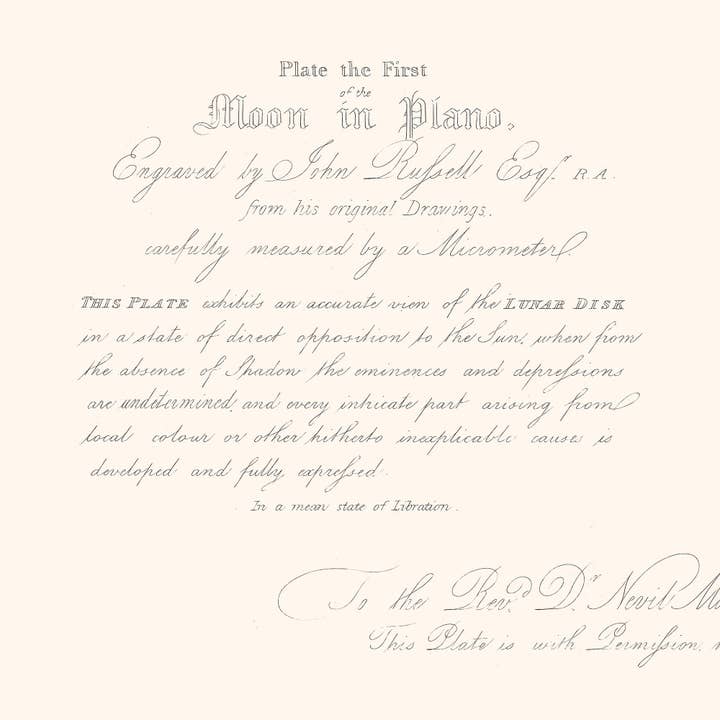 Plate the First
of the
Moon in Plano,
Engraved by John Ruſsell Esqr. R.A.
from his original Drawings.
carefully measured by a Micrometer.
THIS PLATE exhibits an accurate view of the LUNAR DISK
in a state of direct opposition to the Sun, when from
the absence of Shadow the eminences and depreſsions
are undetermined, and every intricate part arising from
local colour or other hitherto inexplicable causes is
developed and fully expreſsed.
In a mean state of Libration.
To the Revd. Dr Nevil
This Plate is with Permiſsion,